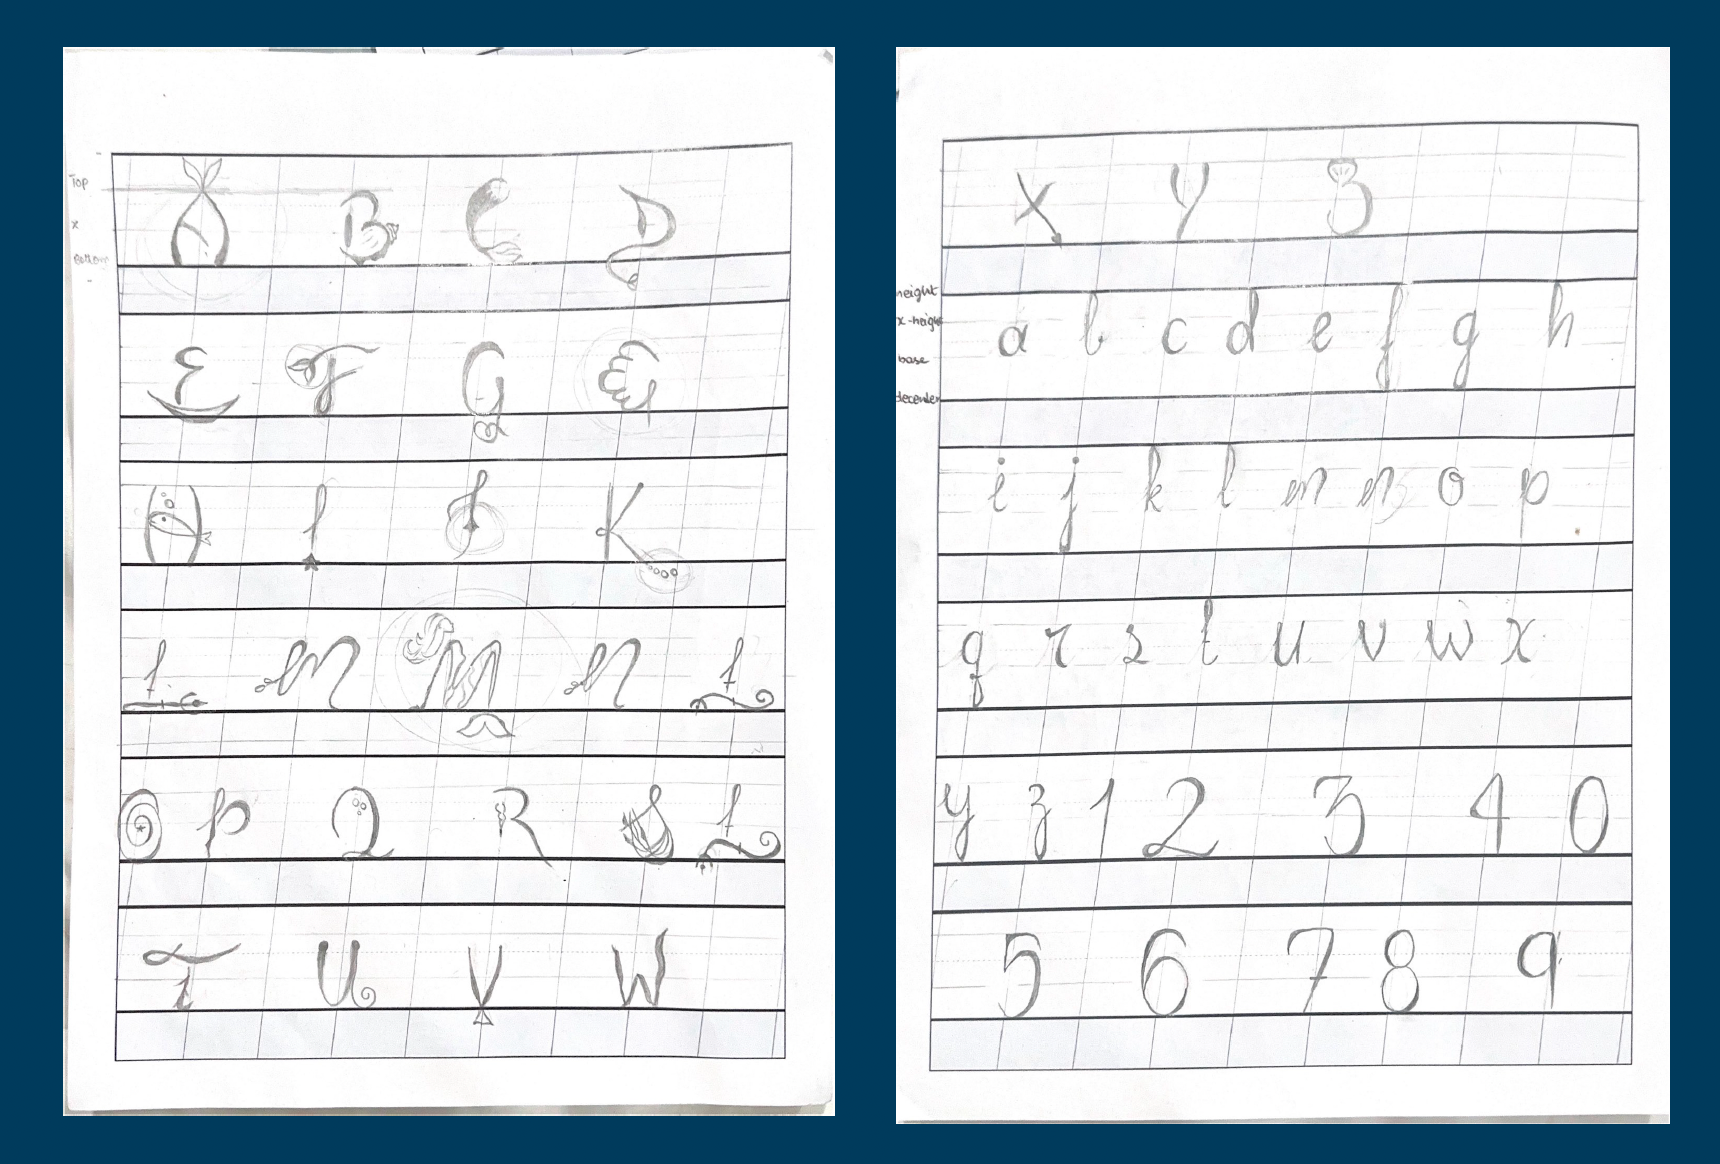 Top
A B C D
x
Bottom
E F G
H I J K
L M M N L
O P Q R S L
T U V W
X Y Z
height
a b c d e f g h
x-height
base
decenter
i j k l m n o p
q r s t u v w x
y z 1 2 3 4 0
5 6 7 8 9